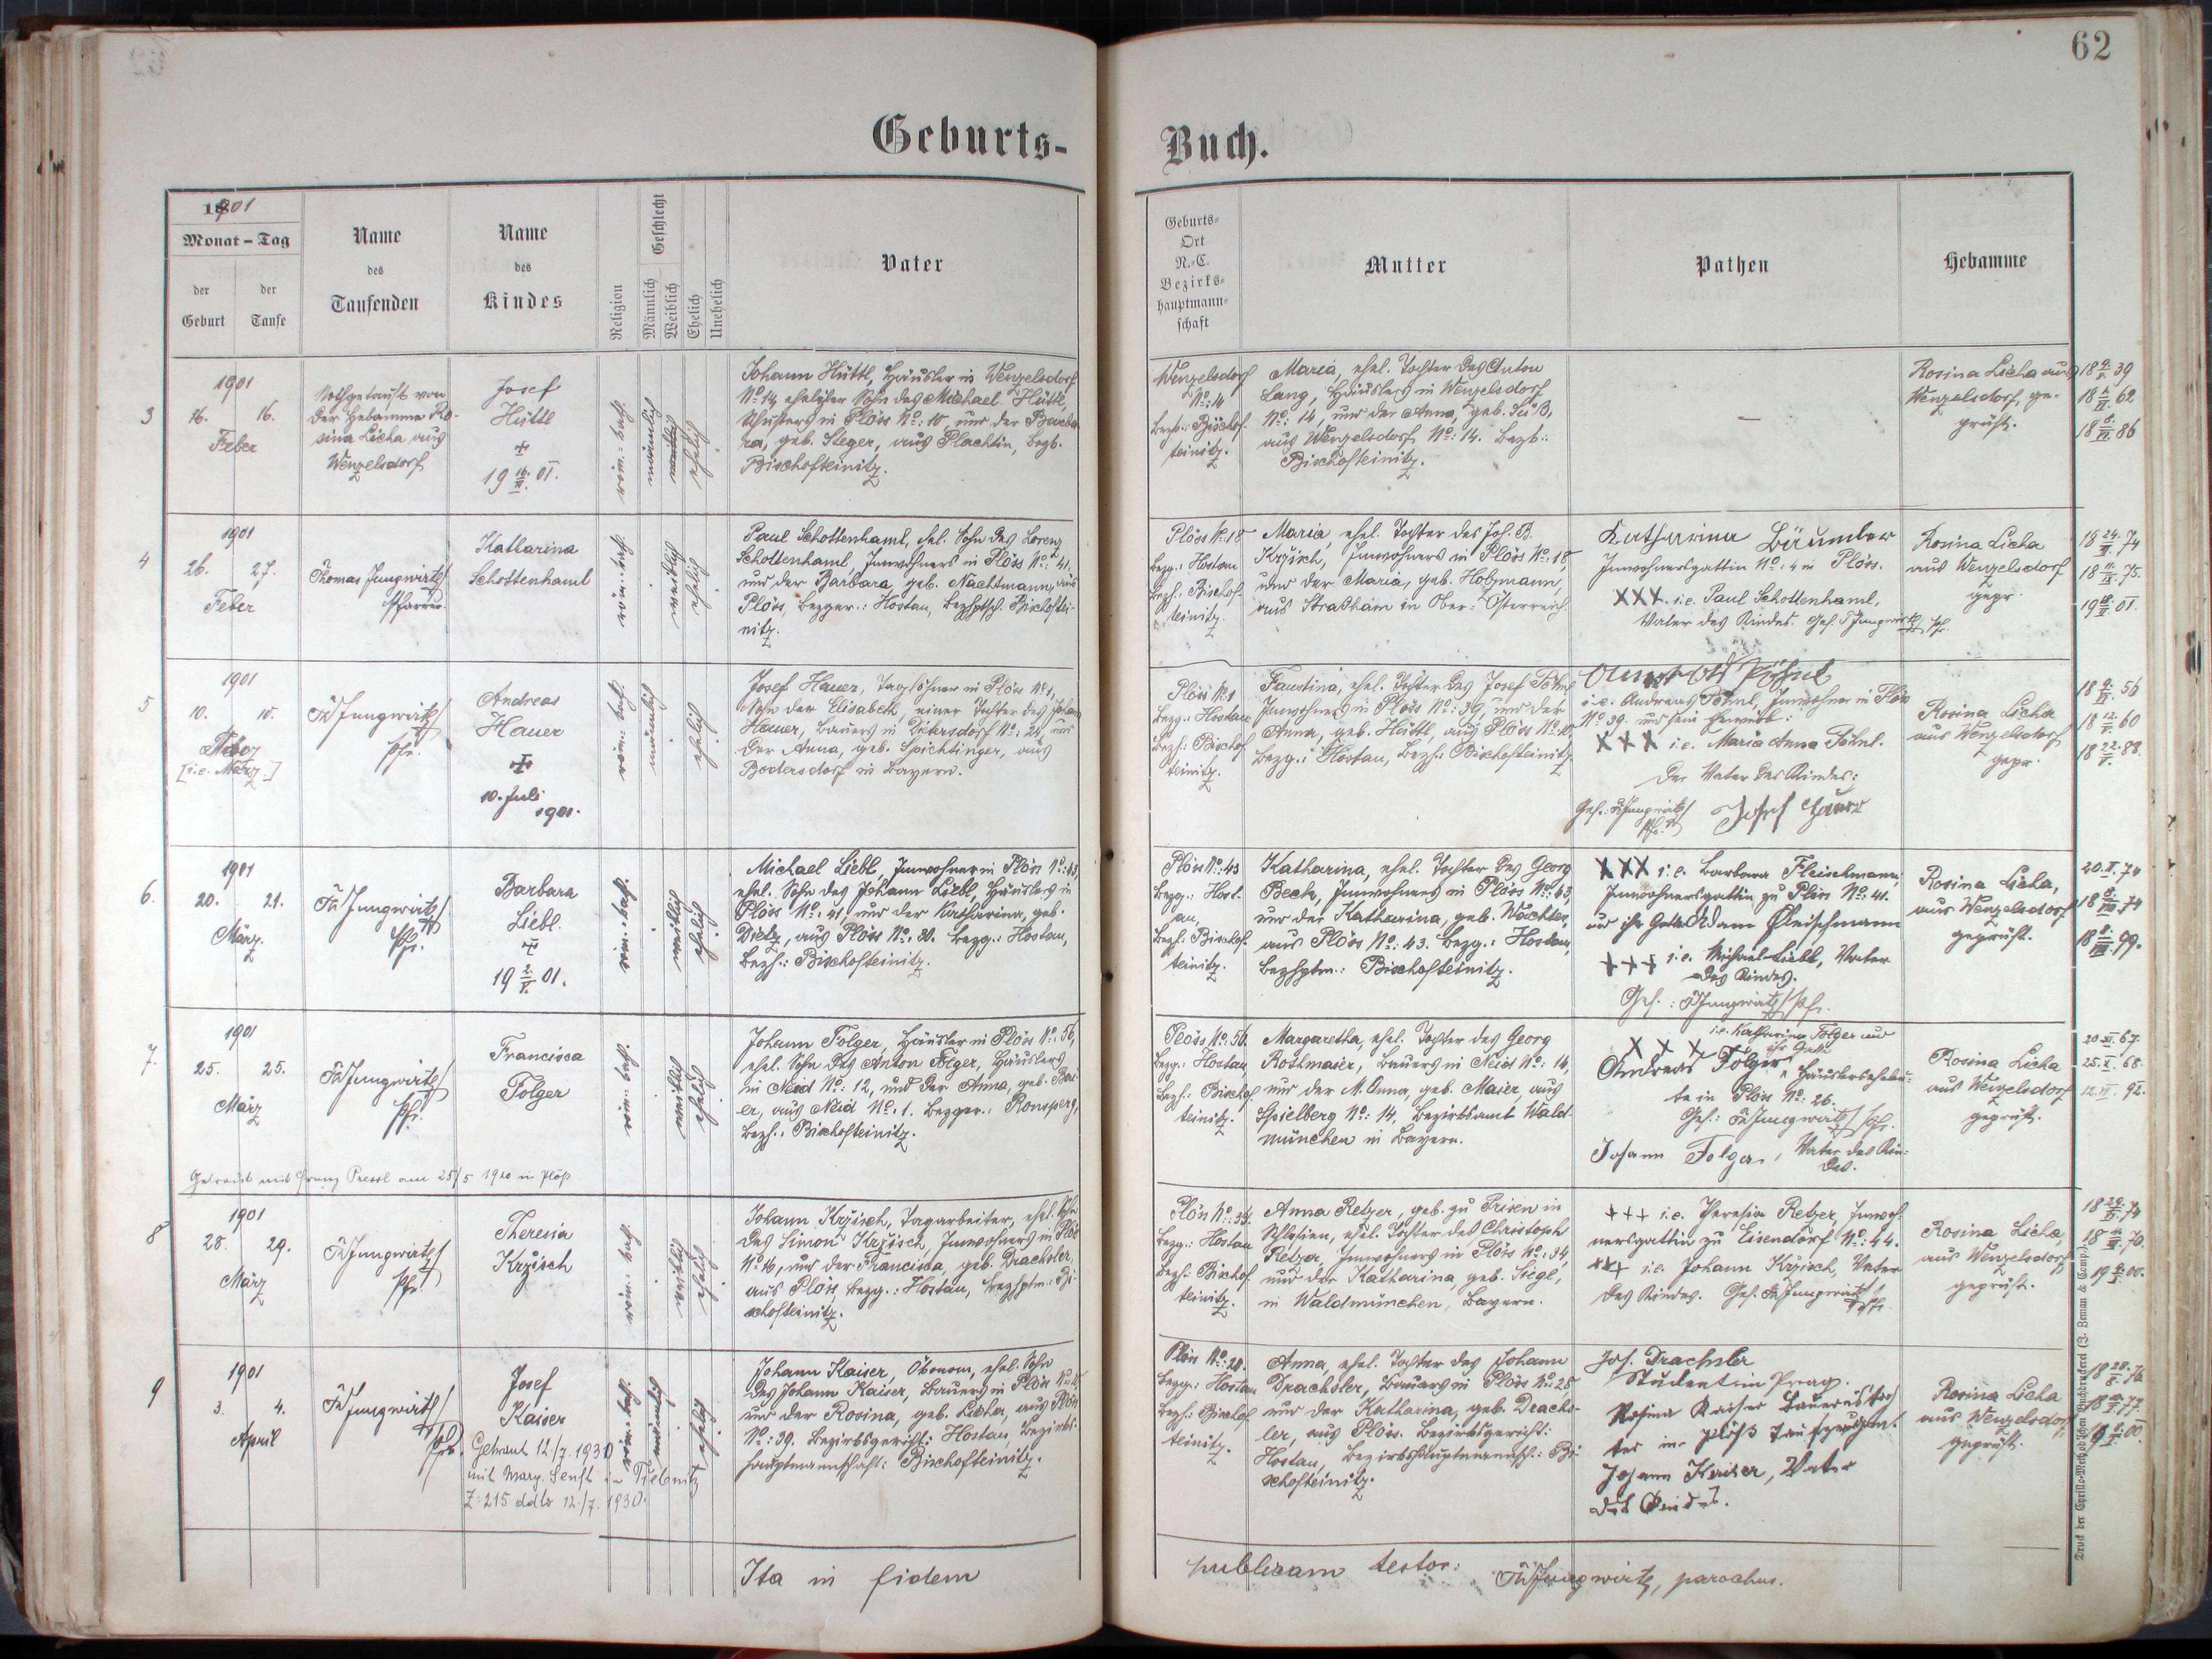 62
Geburts-
Buch.
1901
Monat – Tag
der Geburt
der Taufe
Name des Taufenden
Name des Kindes
Religion
Geschlecht
Männlich
Weiblich
Ehelich
Unehelich
Vater
Geburts-
Ort
N.-C.
Bezirks-
hauptmann-
schaft
Mutter
Pathen
Hebamme
3
1901
16. 16.
Feber
Nothgetauft von
der Hebamme Ro-
sina Licha aus
Wenzelsdorf
Josef
Hüttl
19 16/II. 01.
röm.: kath.
männlich
ehelich
Johann Hüttl, Häusler in Wenzelsdorf
No. 14, ehelicher Sohn des Michael Hüttl
in Plöss No: 10 und der Barba-
ra, geb. Steger, aus Plachtin, Bezb.
Bischofteinitz.
Wenzelsdorf
No: 14
Bezh.: Bischof-
teinitz.
Maria, ehel. Tochter des Anton
Lang, Häuslers in Wenzelsdorf
No: 14, und der Anna, geb. Süß,
aus Wenzelsdorf No: 14. Bezb.:
Bischofteinitz.
—
Rosina Licha aus
Wenzelsdorf, ge-
prüft.
4
1901
26. 27.
Feber
Thomas Jungwirth
Pfarrer
Katharina
Schottenhaml
röm.: kath.
weiblich
ehelich
Paul Schottenhaml, ehel. Sohn des Lorenz
Schottenhaml, Inwohners in Plöss No: 41,
und der Barbara, geb. Nachtmann, aus
Plöss, Bezger.: Hostau, Bezhptsch. Bischoftei-
nitz.
Plöss No: 18
Bezg.: Hostau
Bezh.: Bischof-
teinitz.
Maria ehel. Tochter des Joh. B.
Kržisch, Inwohners in Plöss No: 18,
und der Maria, geb. Holzmann,
aus Straßham in Ober-Österreich.
Katharina Bäumler
Inwohnersgattin No: 4 in Plöss.
XXX i.e. Paul Schottenhaml,
Vater des Kindes. Gef. T Jungwirth Pfr.
Rosina Licha
aus Wenzelsdorf
gepr.
5
1901
10. 10.
Feber
[i.e. März.]
Th Jungwirth
Pfr.
Andreas
Hauer
10. Juli
1901.
röm.: kath.
männlich
ehelich
Josef Hauer, Taglöhner in Plöss No 1,
Sohn der Elisabeth, einer Tochter des Johann
Hauer, Bauers in Dietersdorf No: 24, und
der Anna, geb. Spichtinger, aus
in Bayern.
Plöss No 1
Bezg.: Hostau
Bezh.: Bischof-
teinitz.
Faustina, ehel. Tochter des Josef Pöhnl
Inwohners in Plöss No: 39, und der
Anna, geb. Hüttl, aus Plöss No: 10.
Bezg.: Hostau, Bezh.: Bischofteinitz.
i.e. Andreas Pöhnl, Inwohner in Plöss
No 39. und sein Eheweib:
XXX i.e. Maria Anna Pöhnl.
Der Vater des Kindes:
Gef.: Th Jungwirth Pfr. Josef Hauer
Rosina Licha
aus Wenzelsdorf
gepr.
6.
1901
20. 21.
März.
Th Jungwirth
Pfr.
Barbara
Liebl.
19 2/V. 01.
röm.: kath.
weiblich
ehelich
Michael Liebl, Inwohner in Plöss No: 43,
ehel. Sohn des Johann Liebl, Häuslers in
Plöss No: 41, und der Katharina, geb.
Dietz, aus Plöss No: 30. Bezg.: Hostau,
Bezh.: Bischofteinitz.
Plöss No: 43
Bezg.: Host-
au,
Bezh.: Bischof-
teinitz.
Katharina, ehel. Tochter des Georg
Beck, Inwohners in Plöss No: 43,
und der Katharina, geb. Wächter,
aus Plöss No: 43. Bezg.: Hostau,
Bezhptm.: Bischofteinitz.
XXX i.e. Barbara Fleischmann,
Inwohnersgattin zu Plöss No: 41.
und ihr Gatte Adam Fleischmann
+++ i.e. Michael Liebl, Vater
des Kindes.
Gef.: Th Jungwirth Pfr.
Rosina Licha,
aus Wenzelsdorf
geprüft.
7.
1901
25. 25.
März
Th Jungwirth
Pfr.
Francisca
Folger
röm.: kath.
weiblich
ehelich
Johann Folger, Häusler in Plöss No: 56,
ehel. Sohn des Anton Folger, Häuslers
in Neid No: 12, und der Anna, geb. Bai-
er, aus Neid No. 1. Bezger.: Ronsperg,
Bezh.: Bischofteinitz.
Getraut mit Franz Pressl am 25/5 1920 in Plöß
Plöss No. 56
Bezg.: Hostau,
Bezh.: Bischof-
teinitz.
Margaretha, ehel. Tochter des Georg
Rothmaier, Bauers in Neid No: 14,
und der M. Anna, geb. Maier, aus
Spielberg No: 14, Bezirksamt Wald-
münchen in Bayern.
X X X i.e. Katharina Folger und
ihr Gatte
Andreas Folger, Häuslerseheleu-
te in Plöss No: 26.
Gef.: Th Jungwirth Pfr.
Johann Folger, Vater des Kin-
des.
Rosina Licha
aus Wenzelsdorf
geprüft.
20. XI. 67.
25. X. 68.
12. VI. 92.
8
1901
28. 29.
März
Th Jungwirth
Pfr.
Theresia
Kržisch
röm.: kath.
weiblich
ehelich
Johann Kržisch, Tagarbeiter, ehel. Sohn
des Simon Kržisch, Inwohners in Plöss
No 16, und der Francisca, geb. Drachsler,
aus Plöss, Bezg.: Hostau, Bezhptm.: Bi-
schofteinitz.
Plöss No: 34.
Bezg.: Hostau
Bezh.: Bischof-
teinitz.
Anna Retzer, geb. zu Frisen in
Schlesien, ehel. Tochter des Christoph
Retzer, Inwohners in Plöss No: 34,
und der Katharina, geb. Siegl,
in Waldmünchen, Bayern.
+++ i.e. Theresia Retzer, Inwoh-
nersgattin zu Eisendorf No: 44.
+++ i.e. Johann Kržisch, Vater
des Kindes. Gef. Th Jungwirth, Pfr.
Rosina Licha,
aus Wenzelsdorf,
geprüft.
9
1901
3. 4.
April
Th Jungwirth
Pfr.
Josef
Kaiser
röm.: kath.
männlich
ehelich
Getraut 12./7. 1930
mit Marg. Senft in
Z: 215 ddto 12./7. 1930.
Johann Kaiser, Ökonom, ehel. Sohn
des Johann Kaiser, Bauers in Plöss
und der Rosina, geb. Licha, aus Plöss
No: 39. Bezirksgericht: Hostau, Bezirks-
hauptmannschaft: Bischofteinitz.
Plöss No: 28.
Bezg.: Hostau
Bezh.: Bischof-
teinitz.
Anna, ehel. Tochter des Johann
Drachsler, Bauers in Plöss No: 28
und der Katharina, geb. Drachs-
ler, aus Plöss. Bezirksgericht:
Hostau, Bezirkshauptmannsch.: Bi-
schofteinitz.
Jos. Drachsler
Student in Prag.
Rosina Kaiser Bauerstoch
ter in Plöß Taufzeugin
Johann Kaiser, Vater
des Kindes.
Rosina Licha
aus Wenzelsdorf,
geprüft.
Ita in fidem
publicam testor: Th Jungwirth, parochus.